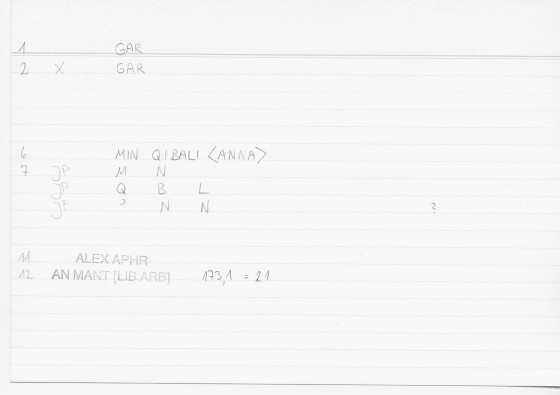 1 GAR
2 X GAR
6 MIN QIBALI <ANNA>
7 JP M N
JP Q B L
JP ʾ N N ?
11 ALEX APHR
12 AN MANT [LIB ARB] 173,1 = 21